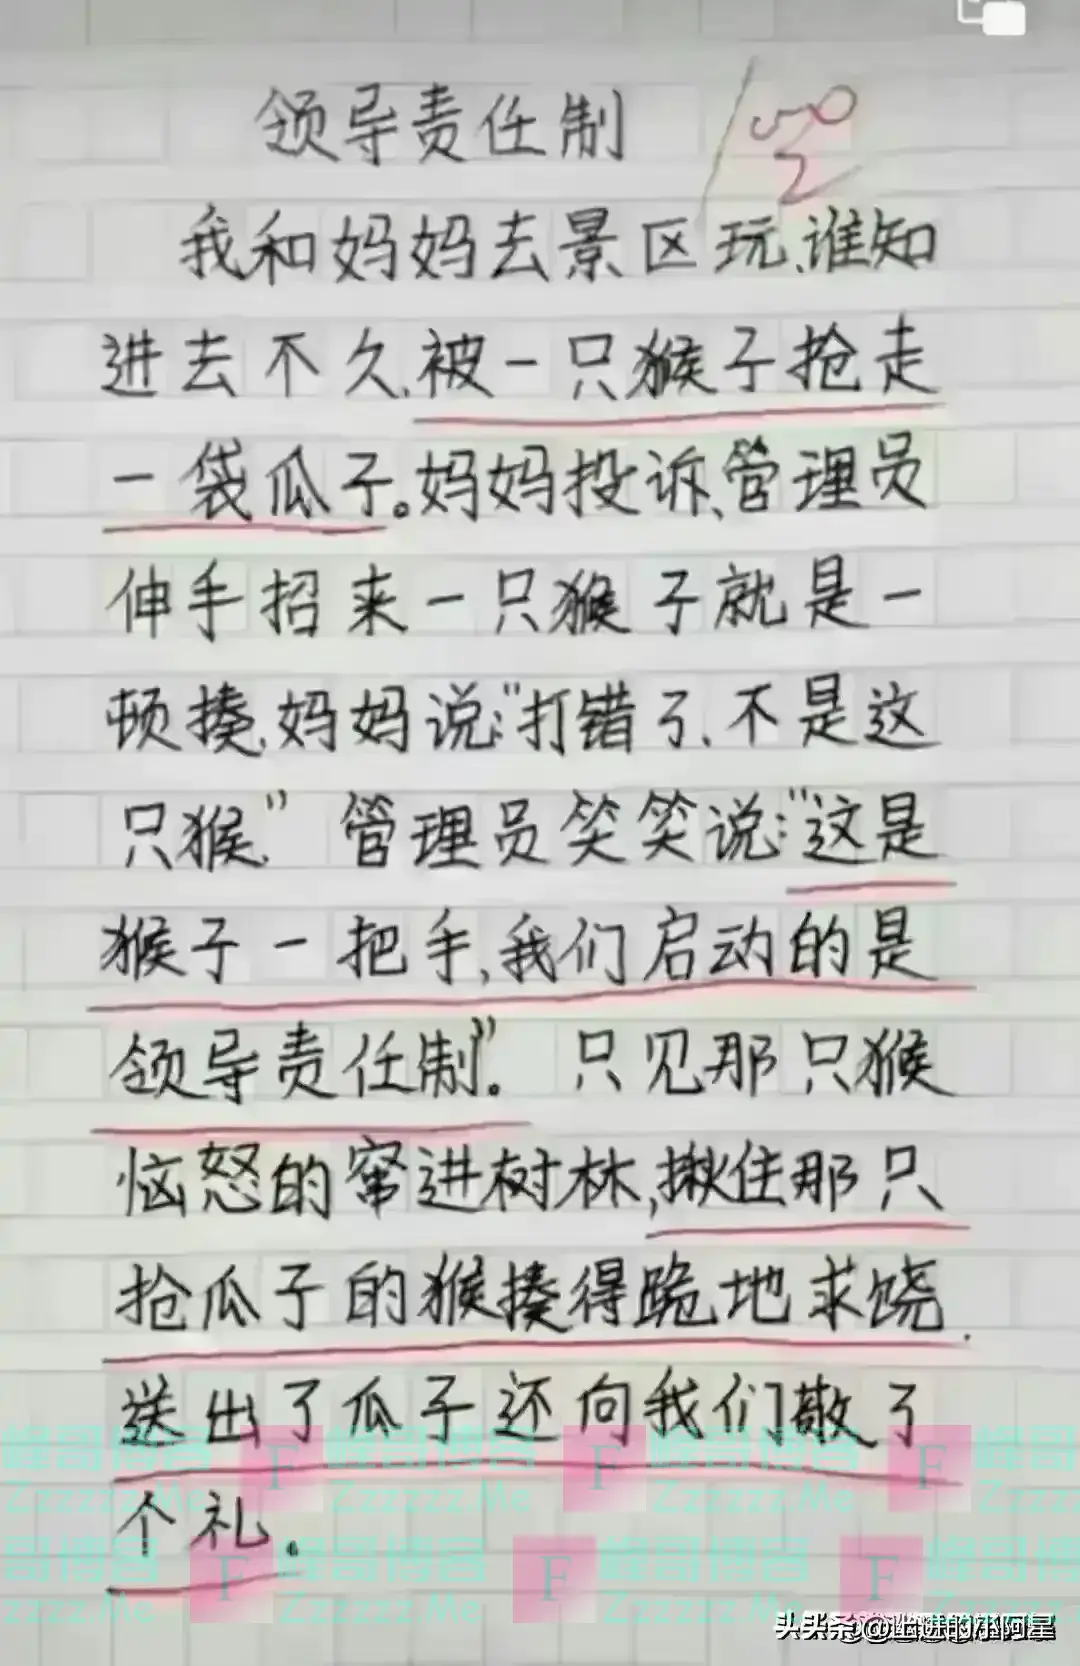 领导责任制
我和妈妈去景区玩、谁知
进去不久、被一只猴子抢走
一袋瓜子。妈妈投诉、管理员
伸手招来一只猴子就是一
顿揍、妈妈说:"打错了、不是这
只猴、" 管理员笑笑说:"这是
猴子一把手,我们启动的是
领导责任制"。 只见那只猴
恼怒的窜进树林,揪住那只
抢瓜子的猴揍得跪地求饶.
送出了瓜子还向我们敬了
个礼。
峰哥博客
Zzzzzz.Me
F
头条 @